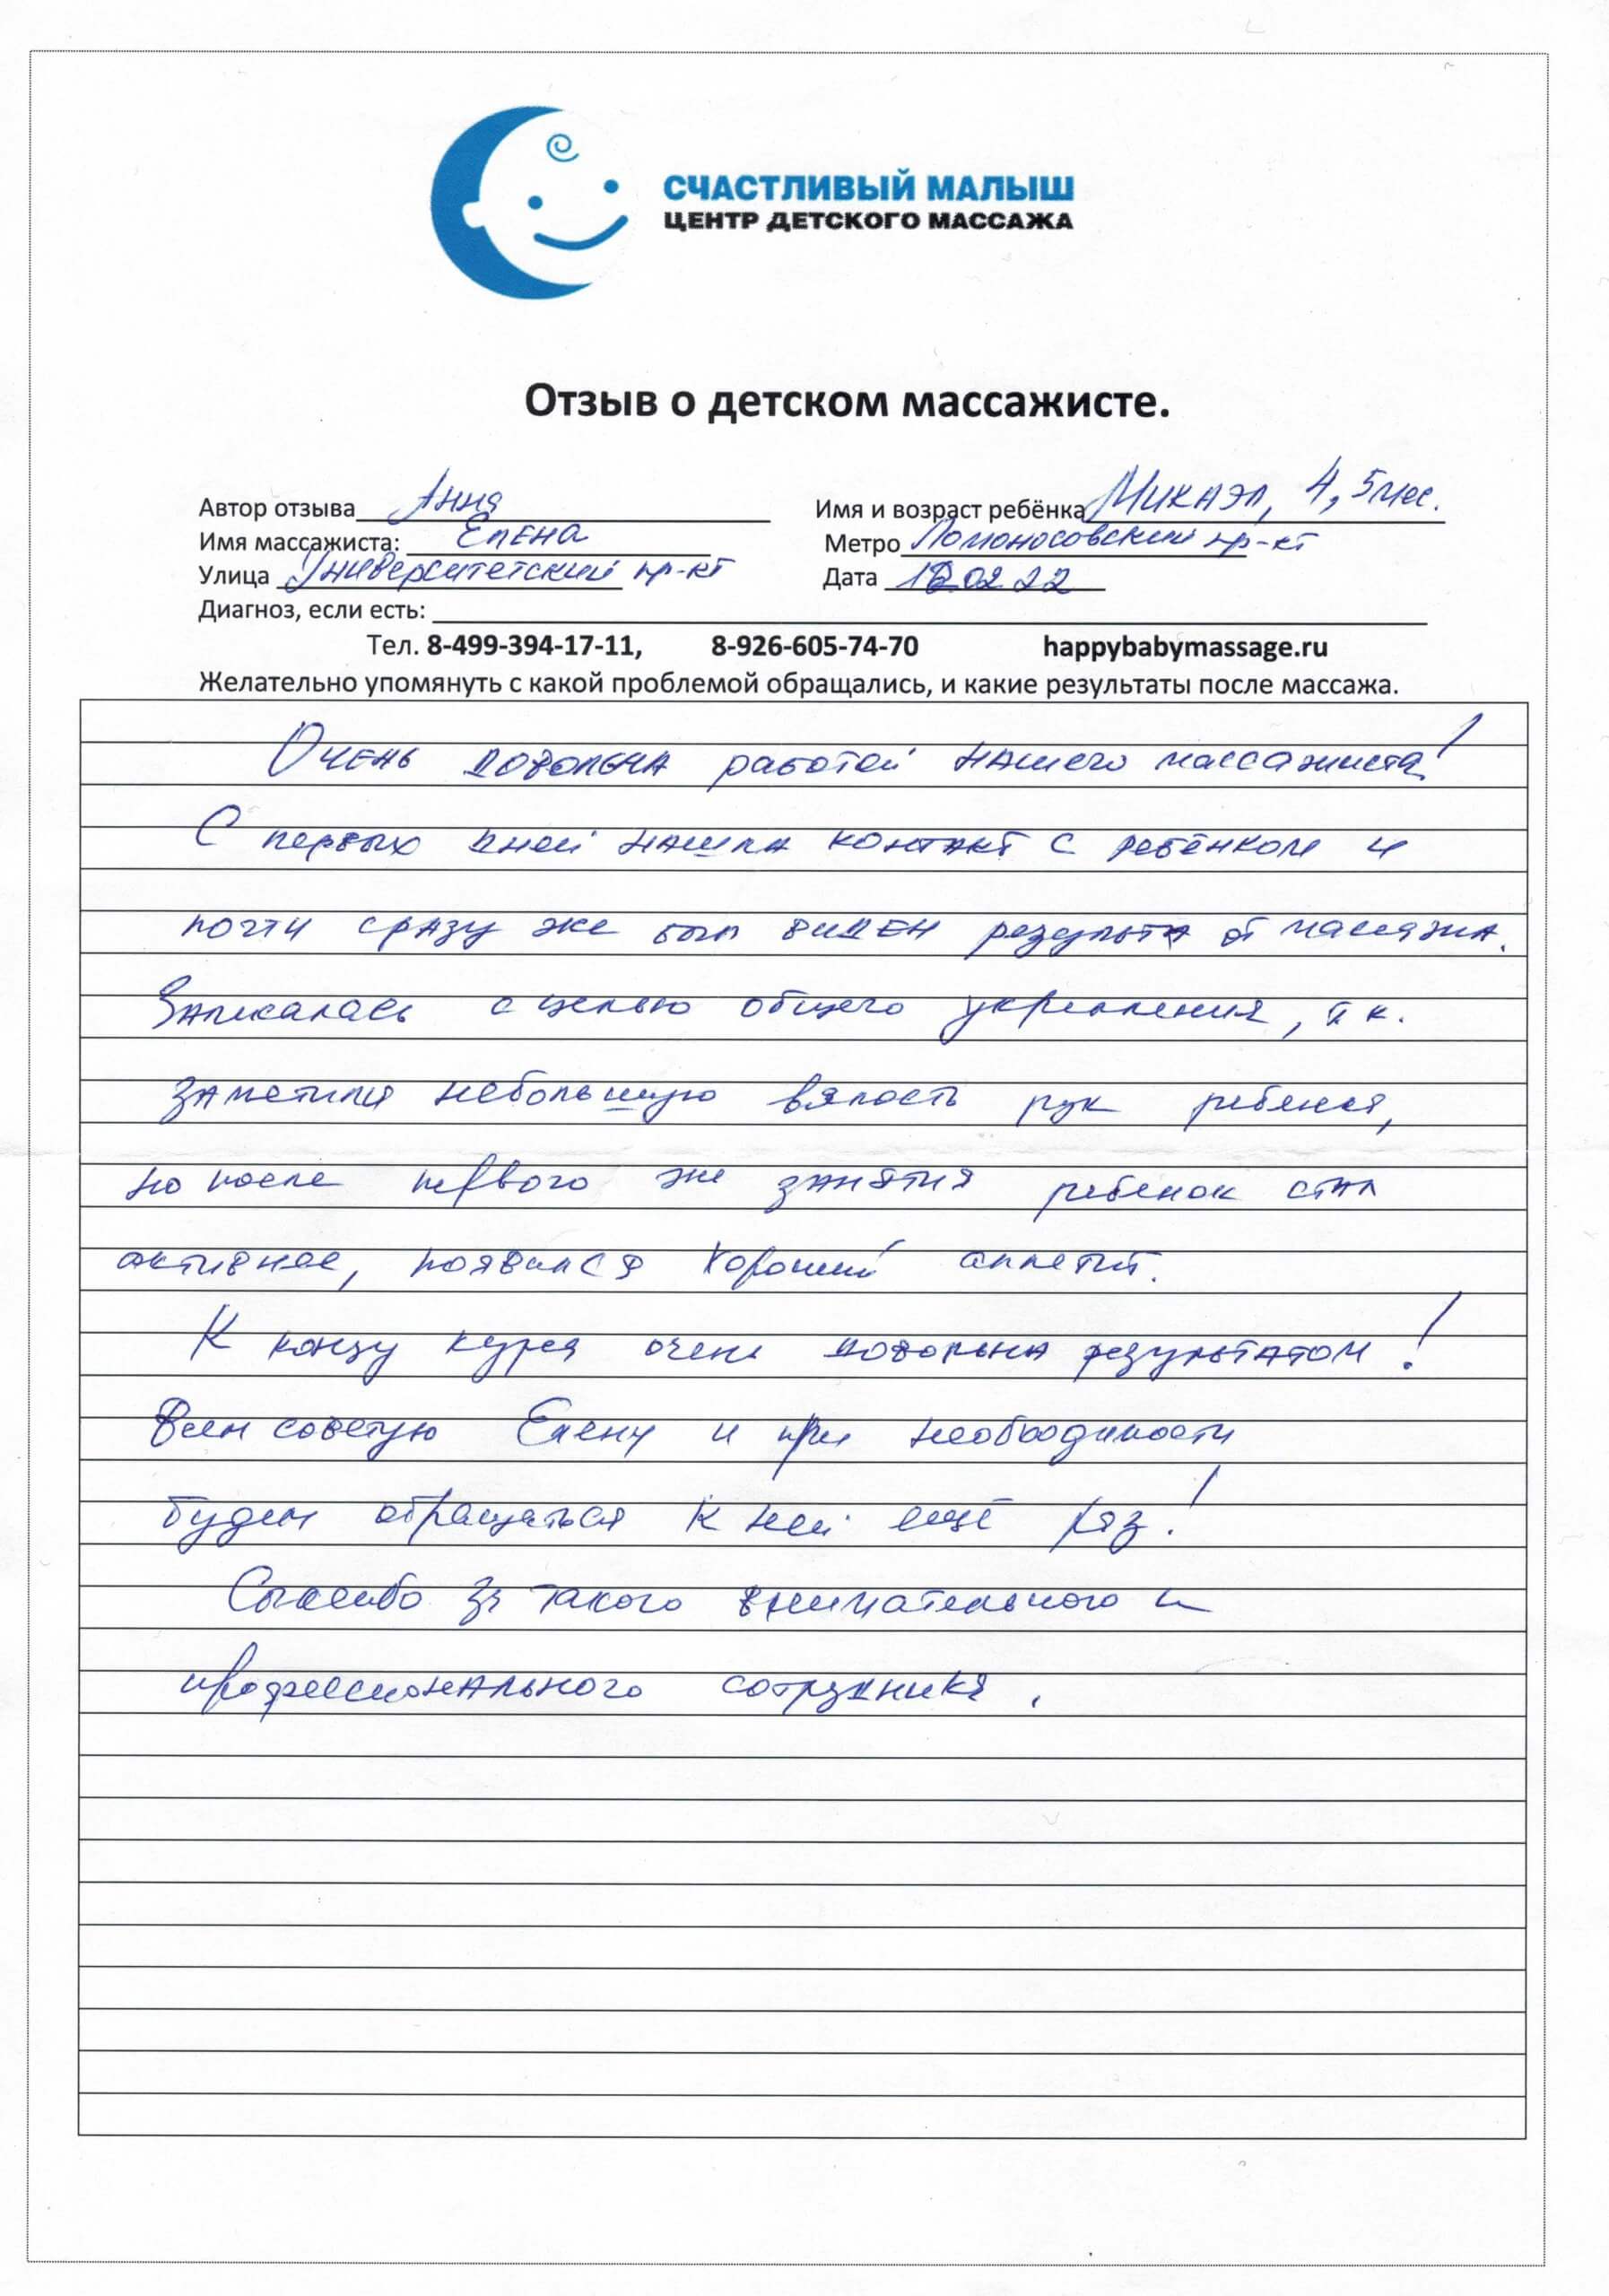 СЧАСТЛИВЫЙ МАЛЫШ
ЦЕНТР ДЕТСКОГО МАССАЖА
Отзыв о детском массажисте.
Автор отзыва Анна Имя и возраст ребёнка Микаэл, 4,5 мес.
Имя массажиста: Елена Метро Ломоносовский пр-кт
Улица Университетский пр-кт Дата 02 22
Диагноз, если есть:
Тел. 8-499-394-17-11, 8-926-605-74-70 happybabymassage.ru
Желательно упомянуть с какой проблемой обращались, и какие результаты после массажа.
Очень довольна работой нашего массажиста!
С первых дней нашла контакт с ребёнком и
почти сразу же был виден результа от массажа.
Записалась с целью общего укрепления, т к.
заметила небольшую вялость рук ребенка,
но после первого же занятия ребенок стал
активнее, появился хороший аппетит.
К концу курса очень довольна результатом!
Всем советую Елену и при необходимости
будем обращаться к ней ещё раз!
Спасибо за такого внимательного и
профессионального сотрудника.